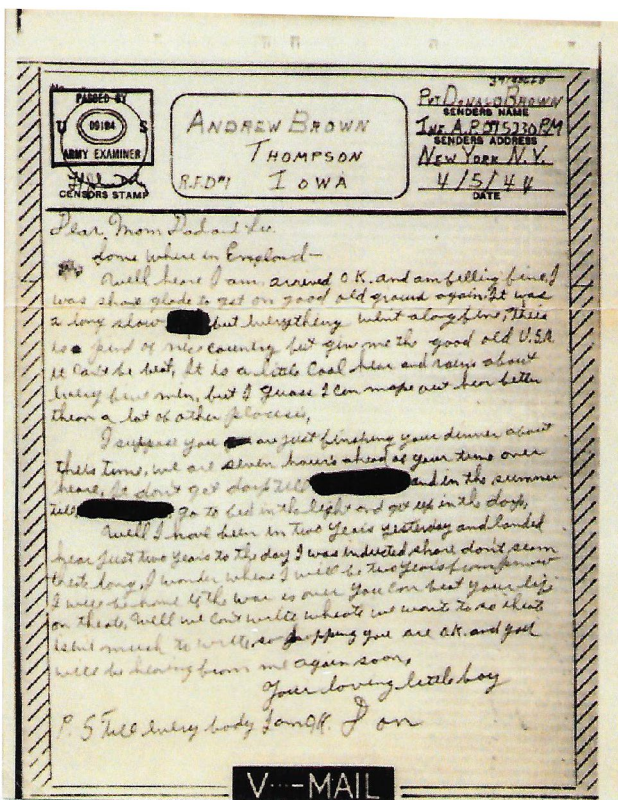 PASSED BY
U 09184 S
ARMY EXAMINER
CENSORS STAMP
ANDREW BROWN
THOMPSON
R.F.D #1 IOWA
PVT DONALD BROWN
SENDERS NAME
SENDERS ADDRESS
NEW YORK N.Y.
4/5/44
DATE
Dear Mom Dad and
Some where in England—
Well heare I am arrived O.K. and am felling fine, I
was shore glade to get on good old ground again. It was
a long slow but everything went along fine, this
is a kind of nice country but give me the good old U.S.A
it can't be beat, It is a little Cool hear and rains about
every five min, but I guess I can make out hear better
then a lot of other places,
I suppose you are just finishing your dinner about
this time, we are seven hours ahead of your time over
heare, It don't get dark till and in the summer
till go to bed in the light and get up in the dark,
Well I have been in two years yesterday and landed
hear just two years to the day I was inducted, shore don't seem
that long, I wonder where I will be two years from now
I will be home if the war is over you can beat your life
on that, Well we can't write what we want to so there
isn't much to write, so hopping you are O.K. and you
will be hearing from me again soon,
Your loving little boy
P.S Tell every body I am O.K. Don
V···—MAIL